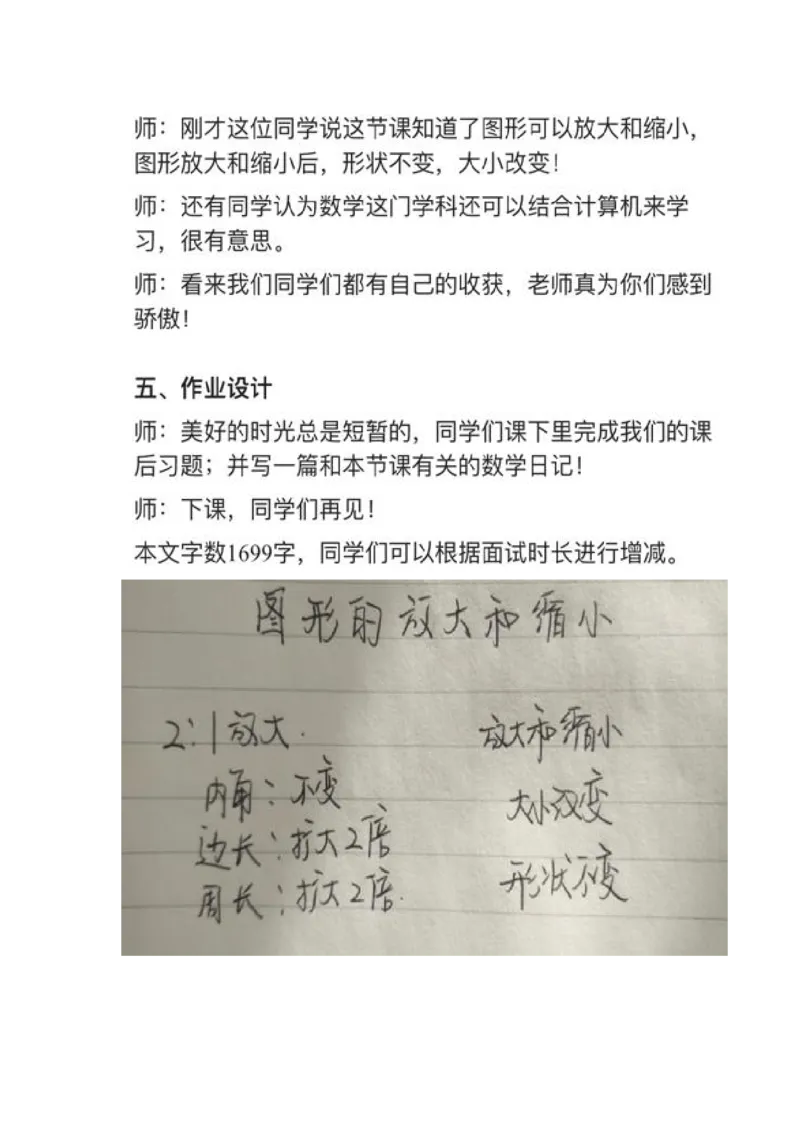 师：刚才这位同学说这节课知道了图形可以放大和缩小，
图形放大和缩小后，形状不变，大小改变！
师：还有同学认为数学这门学科还可以结合计算机来学
习，很有意思。
师：看来我们同学们都有自己的收获，老师真为你们感到
骄傲！
五、作业设计
师：美好的时光总是短暂的，同学们课下里完成我们的课
后习题；并写一篇和本节课有关的数学日记！
师：下课，同学们再见！
本文字数1699字，同学们可以根据面试时长进行增减。
图形的放大和缩小
2:1放大.
内角：不变
边长：扩大2倍
周长：扩大2倍.
放大和缩小
大小改变
形状不变